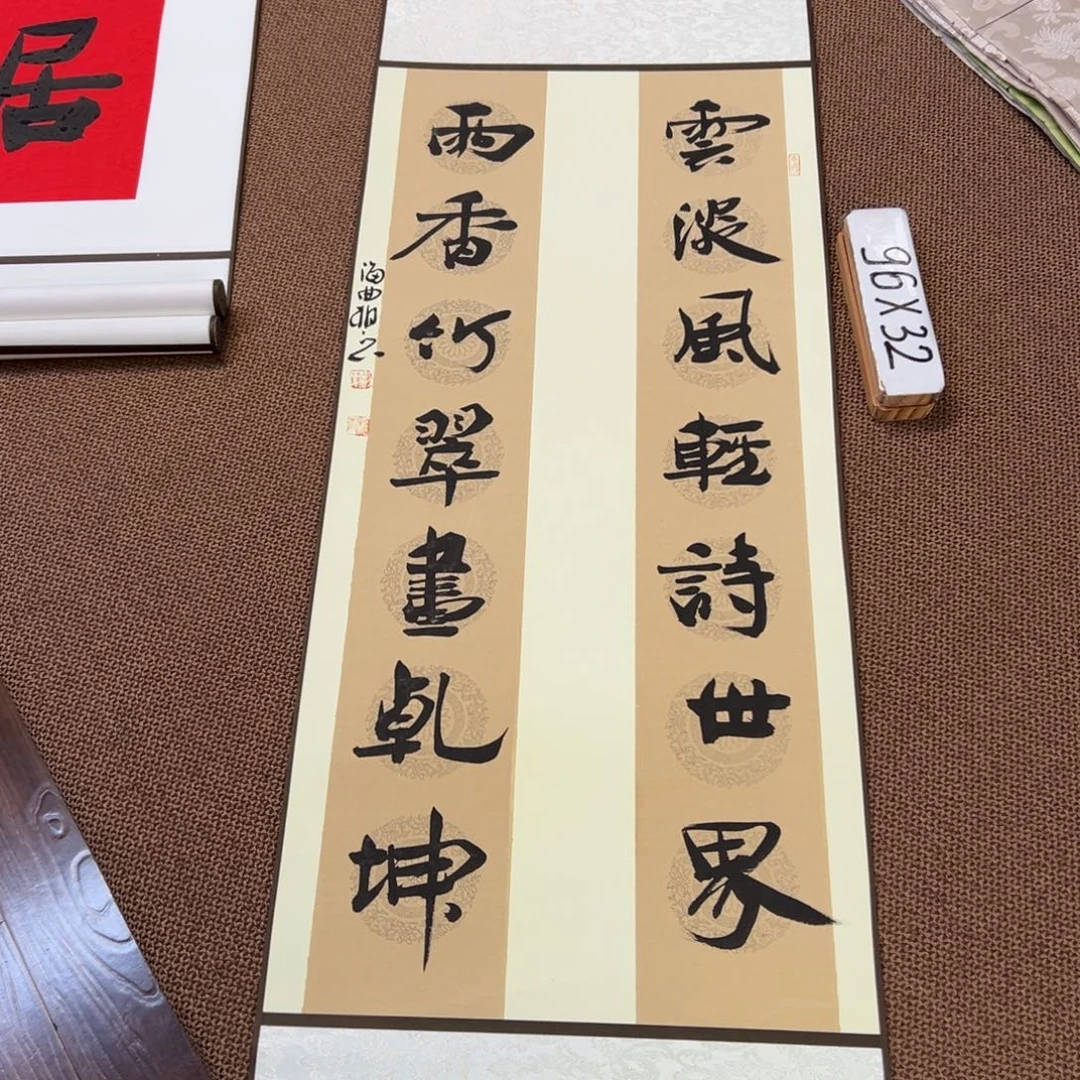 雲淡風輕詩世界
雨香竹翠畫乾坤
海曲
居
96X32